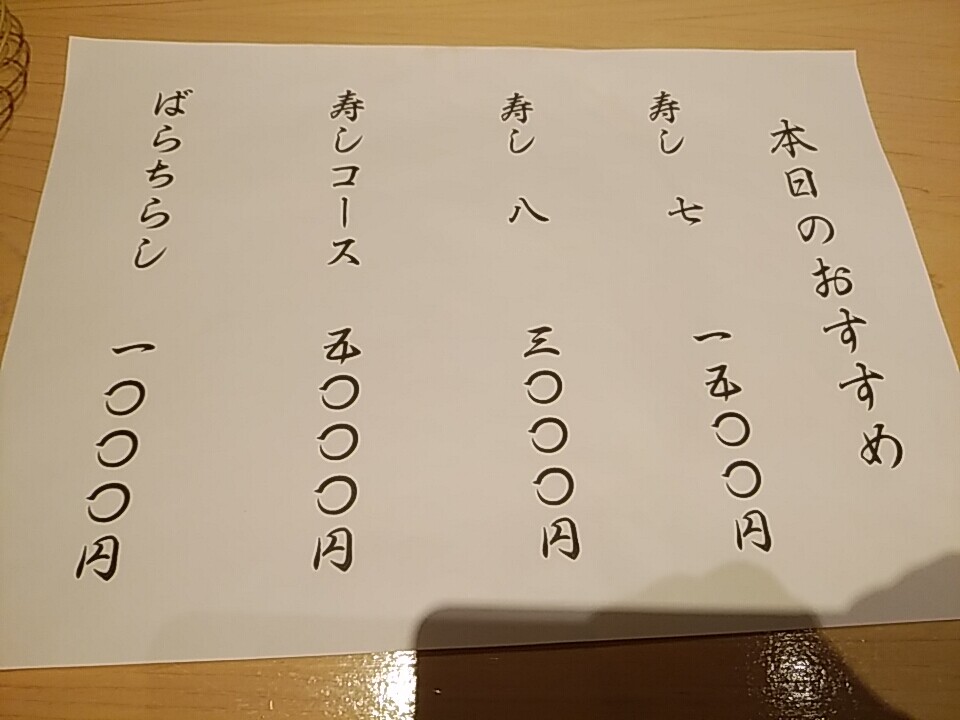 本日のおすすめ
寿し 七 一五〇〇円
寿し 八 三〇〇〇円
寿しコース 五〇〇〇円
ばらちらし 一〇〇〇円